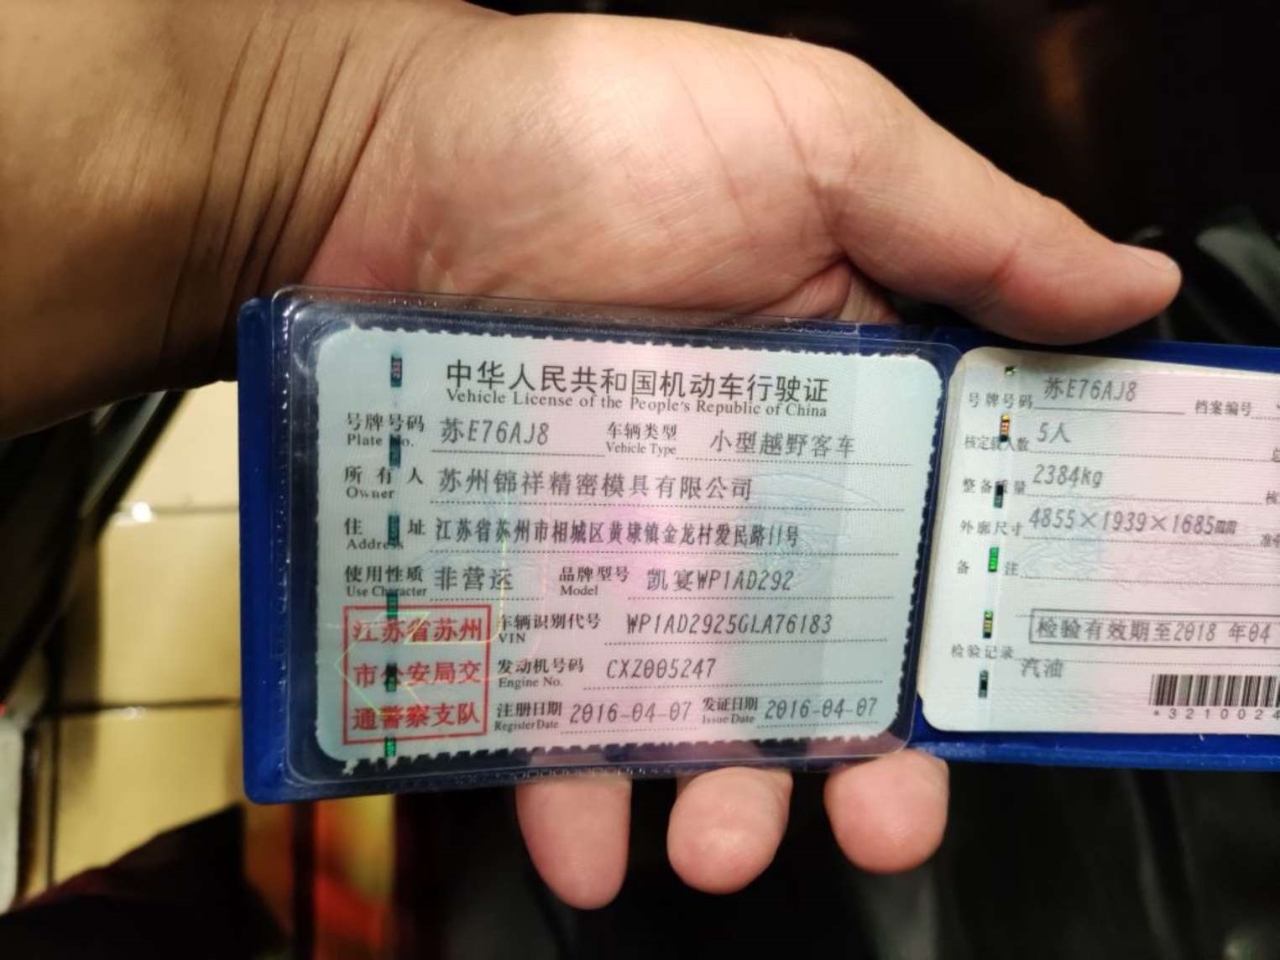 中华人民共和国机动车行驶证
Vehicle License of the People's Republic of China
号牌号码 苏E76AJ8 车辆类型 小型越野客车
Plate No. Vehicle Type
所有人 苏州锦祥精密模具有限公司
Owner
住址 江苏省苏州市相城区黄埭镇金龙村爱民路11号
Address
使用性质 非营运 品牌型号 凯宴WP1AD292
Use Character Model
江苏省苏州
市公安局交
通警察支队
车辆识别代号 WP1AD2925GLA76183
VIN
发动机号码 CXZ005247
Engine No.
注册日期 2016-04-07 发证日期 2016-04-07
Register Date Issue Date
号牌号码 苏E76AJ8 档案编号
核定载人数 5人
整备质量 2384kg
外廓尺寸 4855×1939×1685
备注
检验有效期至2018 年04
检验记录
汽油
*3210024